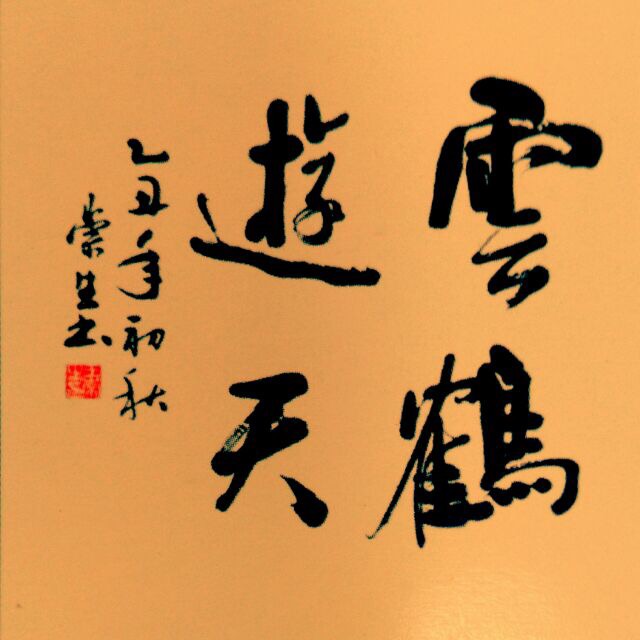 雲鶴
遊天
乙丑年初秋
崇生书